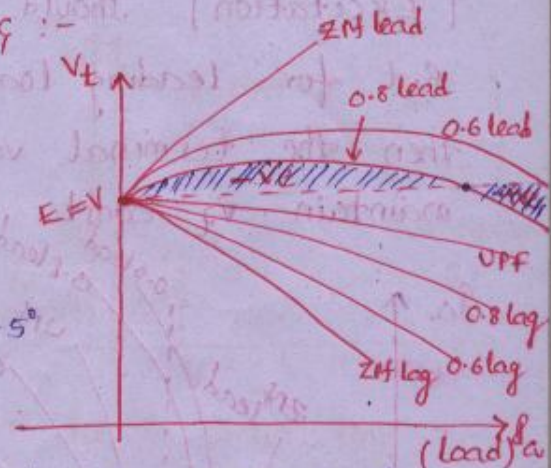 :-
ZPf lead
Vt
0.8 lead
0.6 lead
E=V
UPF
0.8 lag
5°
0.6 lag
ZPf lag
(load) Ia